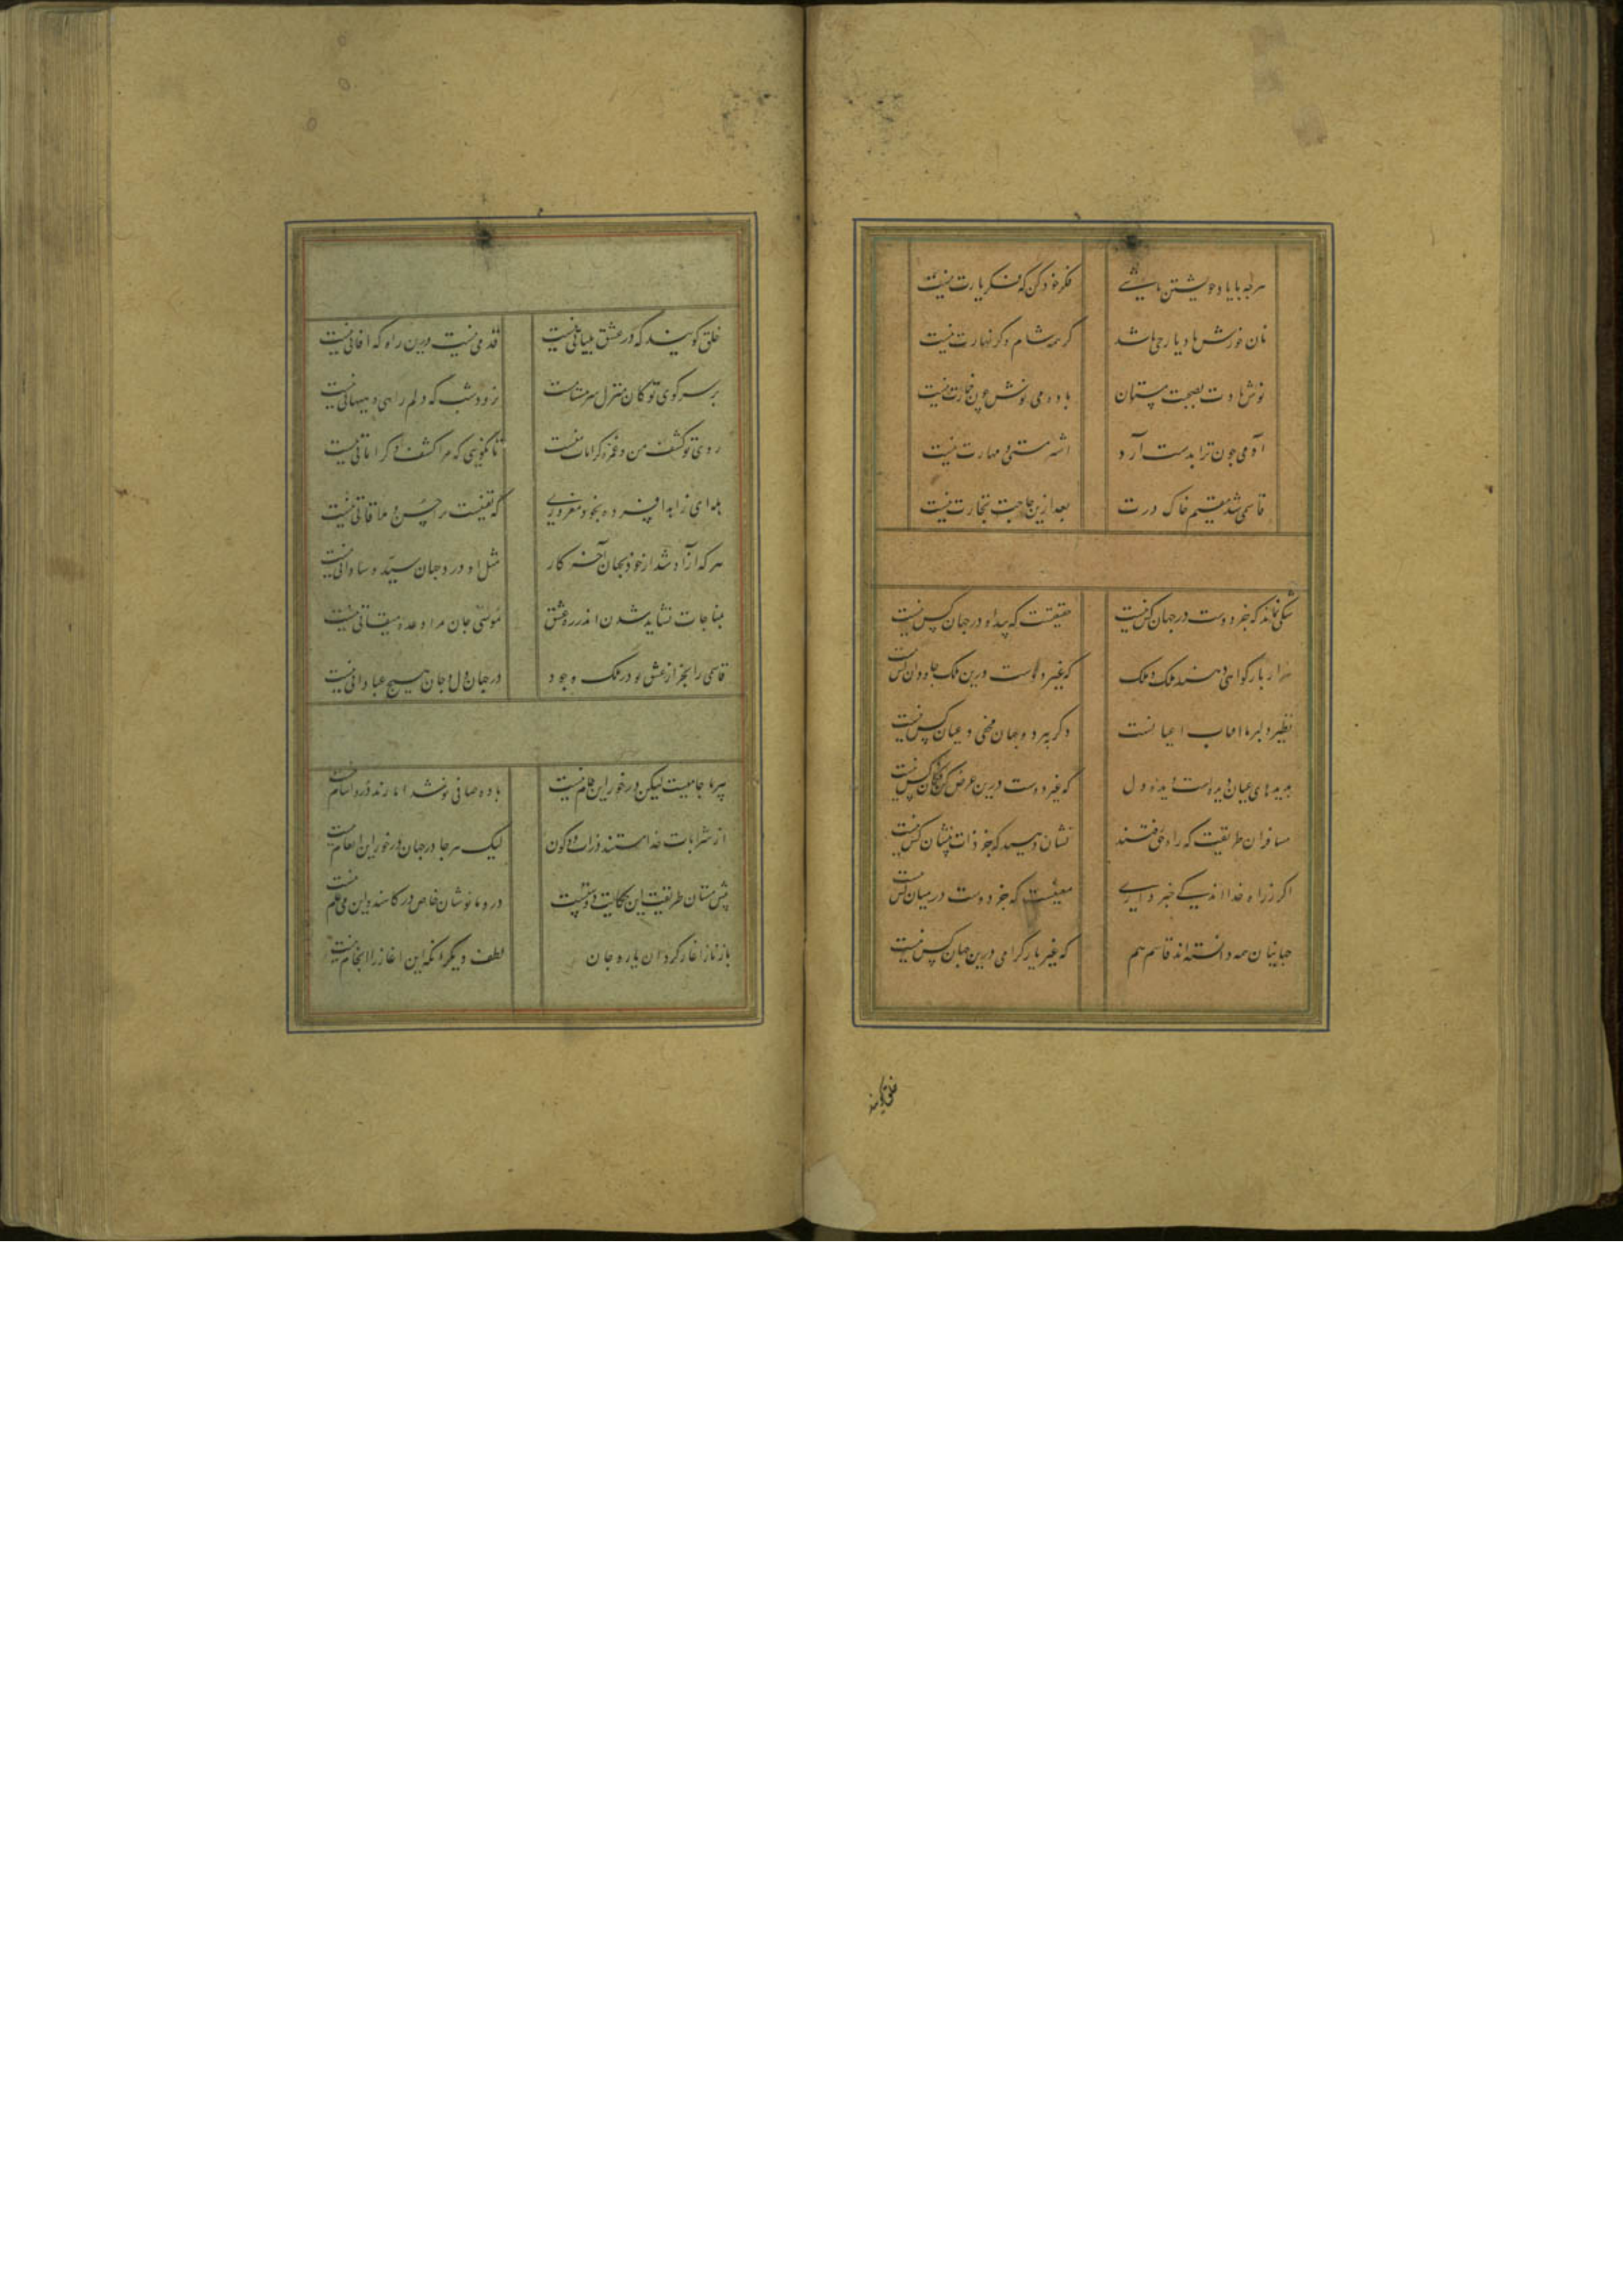 هرچه بایاد خویشتن باشی فکر خود کن که فکر یارت نیست
نان خورش یاد یار می باشد گر همه شام و گر نهارت نیست
نوش بادت بصحبت مستان باده می نوش چون خمارت نیست
آدمی چون ترا بدست آرد اشتر مستی و مهارت نیست
قاسمی شد مقیم خاک درت بعد ازین حاجت تجارت نیست
شکی نماند که جز دوست در جهان کس نیست حقیقتست که پیدا و در جهان کس نیست
هزار بار گواهی دهند ملک و ملک که غیر دوست درین ملک جاودان کس نیست
نظیر دلبر ما افتاب اعیانست دگر بهر دو جهان مخفی و عیان کس نیست
بدیدهای عیان دیده است دیده دل که غیر دوست درین عرض کن فکان کس نیست
مسافران طریقت که راه حق رفتند نشان دهید که جز ذات بی نشان کس نیست
اگر ز راه خدا اندکی خبر داری معینست که جز دوست در میان کس نیست
جهانیان همه دانسته اند قاسم هم که غیر یار گرامی درین جهان کس نیست
خلق گویند
خلق گویند که در عشق مبیاتی نیست قدمی نیست درین راه که افاتی نیست
بر سر کوی تو کان منزل سرمستانست نرود شب که دلم را هی و هیهاتی نیست
روی تو کشف من و غمزه کرامات منست تا نگویی که مرا کشف و کراماتی نیست
هله ای زاهد افسرده بخود مغروری که تعینست را حسن ملاقاتی نیست
هر که ازاد شد از خود بجهان آخر کار مثل او در دو جهان سید و ساداتی نیست
بمناجات نشاید شدن اندر ره عشق موسی جان مرا وعده میقاتی نیست
قاسمی را بجز از عشق تو در ملک وجود در جهان دل و جان هیچ عباداتی نیست
پیر ما جامیست لیکن در خور این جام نیست باده صافی نوشد اما رند درد اشام نیست
از شرابات خدا مستند ذرات دو کون لیک هر جا در جهان در خور این انعام نیست
پیش مستان طریقت این حکایت دوستیست درد ما نوشان خاص در کاسند و این می عام نیست
باز ناز اغاز کرد ان یار و جان لطف دیگر انکه این اغاز را انجام نیست